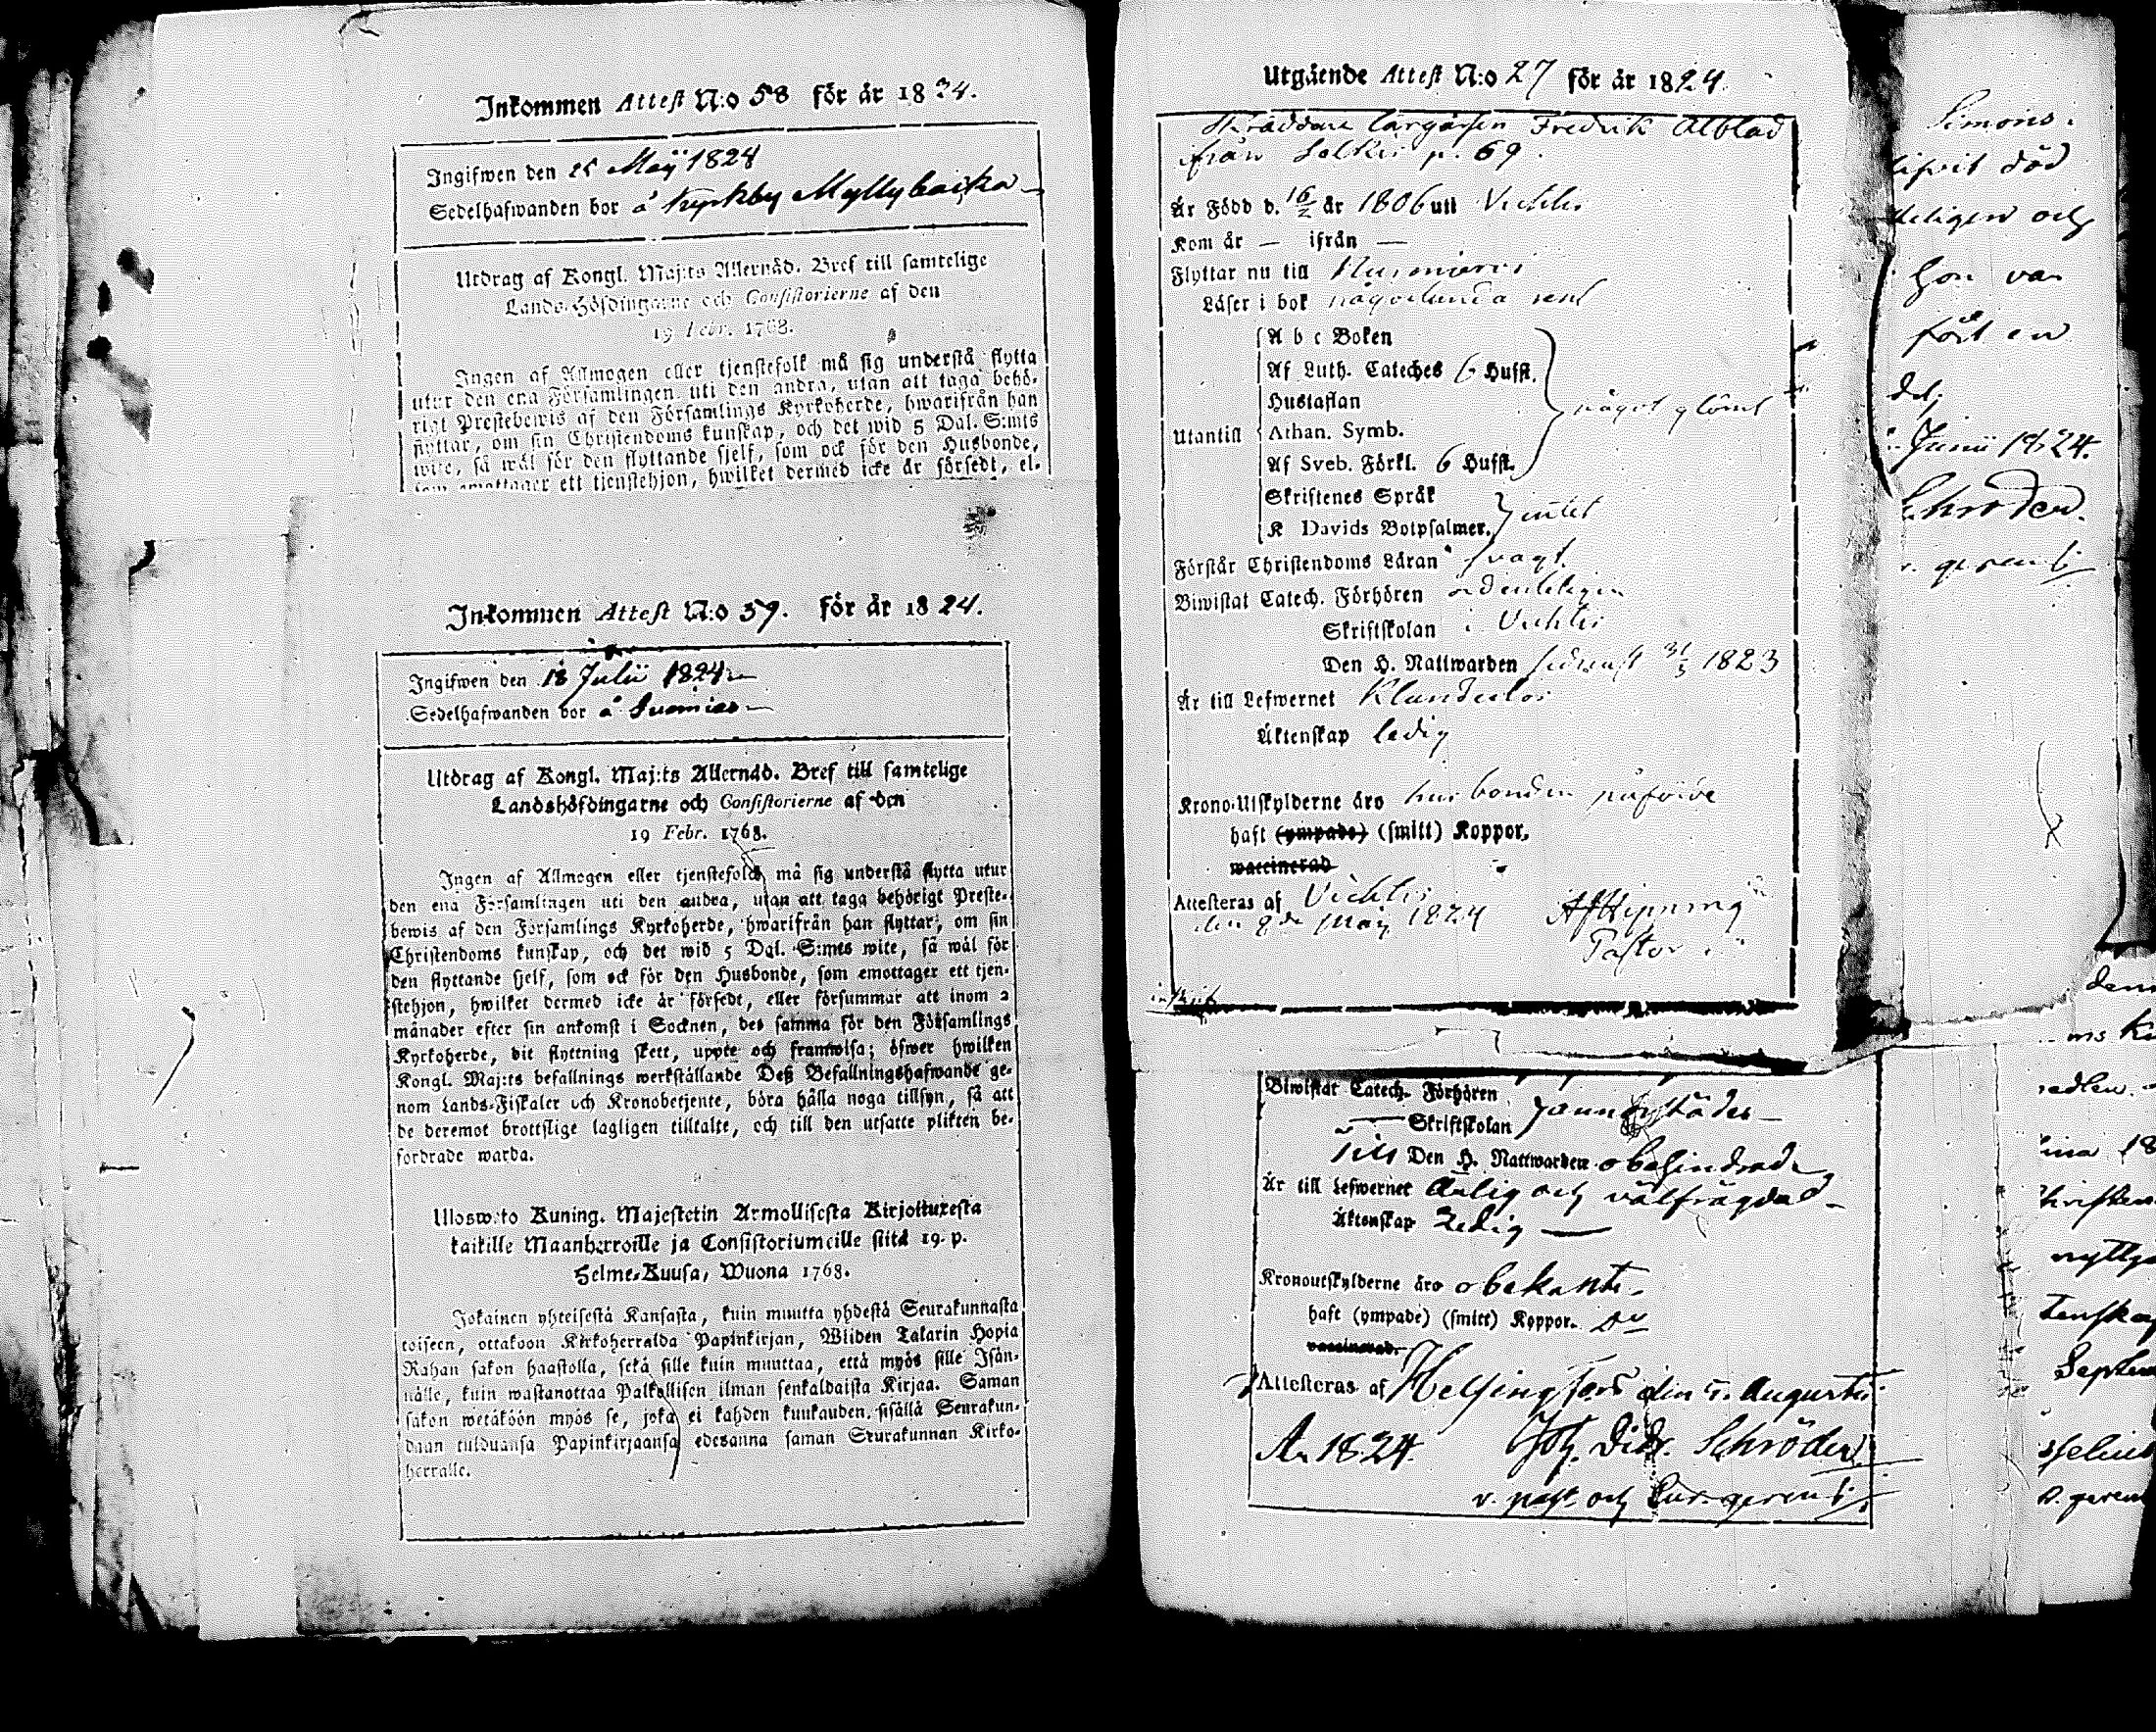 Inkommen Attest N:o 58 för år 1824.
Ingifwen den 25 Maij 1824
Sedelhafwanden bor å Kyrkby Myllybacka
Utdrag af Kongl. Maj:ts Allernåd. Bref till samtelige
Lands-Höfdingarne och Consistorierne af den
19 Febr. 1768.
Ingen af Allmogen eller tjenstefolk må sig understå flytta
utur den ena Församlingen uti den andra, utan att taga behö-
rigt Prestebewis af den Församlings Kyrkoherde, hwarifrån han
flyttar, om sin Christendoms kunskap, och det wid 5 Dal. S:mts
wite, så wäl för den flyttande sjelf, som ock för den Husbonde,
som emottager ett tjenstehjon, hwilket dermed icke är försedt, el-
Inkommen Attest N:o 59. för år 1824.
Ingifwen den 18 Julii 1824
Sedelhafwanden bor å Suomias
Utdrag af Kongl. Maj:ts Allernåd. Bref till samtelige
Landshöfdingarne och Consistorierne af den
19 Febr. 1768.
Ingen af Allmogen eller tjenstefolck må sig understå flytta utur
den ena Församlingen uti den andra, utan att taga behörigt Preste-
bewis af den Församlings Kyrkoherde, hwarifrån han flyttar, om sin
Christendoms kunskap, och det wid 5 Dal. S:mts wite, så wäl för
den flyttande sjelf, som ock för den Husbonde, som emottager ett tjen-
stehjon, hwilket dermed icke är försedt, eller försummar att inom 2
månader efter sin ankomst i Socknen, det samma för den Församlings
Kyrkoherde, dit flyttning skett, uppte och framwisa; öfwer hwilken
Kongl. Maj:ts befallnings werkställande Deß Befallningshafwande ge-
nom Lands-Fiskaler och Kronobetjente, böra hålla noga tillsyn, så att
de deremot brottslige lagligen tilltalte, och till den utsatte plikten be-
fordrade warda.
Ulosweto Kuning. Majestetin Armollisesta Kirjoituxesta
kaikille Maanherroille ja Consistoriumeille siitä 19. p.
Helme-Kuusa, Wuona 1768.
Jokainen yhteisestä Kansasta, kuin muutta yhdestä Seurakunnasta
toiseen, ottakoon Kirkoherralda Papinkirjan, Wiiden Talarin Hopia
Rahan sakon haastolla, sekä sille kuin muuttaa, että myös sille Isän-
nälle, kuin wastanottaa Palkollisen ilman senkaldaista Kirjaa. Saman
sakon wetäköön myös se, joka ei kahden kuukauden sisällä Seurakun-
daan tulduansa Papinkirjaansa edesanna saman Seurakunnan Kirko-
herralle.
Utgående Attest N:o 27 för år 1824.
Skräddare lärgåssen Fredrik Alblad
ifrån Solkis p. 69.
Är Född d. 16/2 år 1806 uti Vichtis
Kom år — ifrån —
Flyttar nu till Nurmijärvi
Läser i bok någorlunda rent
Utantill
A b c Boken
Af Luth. Cateches 6 Hufst.
Hustaflan
Athan. Symb.
Af Sveb. Förkl. 6 Hufst.
något glömt
Skriftenes Språk
K Davids Botpsalmer.
intet
Förstår Christendoms Läran svagt
Biwistat Catech. Förhören ordenteligen
Skriftskolan i Vichtis
Den H. Nattwarden sednast 31/5 1823
Är till Lefwernet Klanderlös
Äktenskap ledig
Krono-Utskylderne äro husbonden påförde
haft (ympade) (smitt) Koppor.
waccinerad
Attesteras af Vichtis
den 8de Maij 1824 Af Hipping
Pastor
Biwistat Catech. Förhören
Skriftskolan
Till Den H. Nattwarden obehindrad
Är till Lefwernet Ärlig och välfrägdad
Äktenskap Ledig
Kronoutskylderne äro obekante
haft (ympade) (smitt) Koppor.
waccinerad.
Attesteras af Helsingfors den 5. Augusti
A. 1824. Joh. Didr. Schröder
v. past. och Cur. gerens.
Simons.
död
hon var
del,
Junii 1824.
Schröder.
gerens